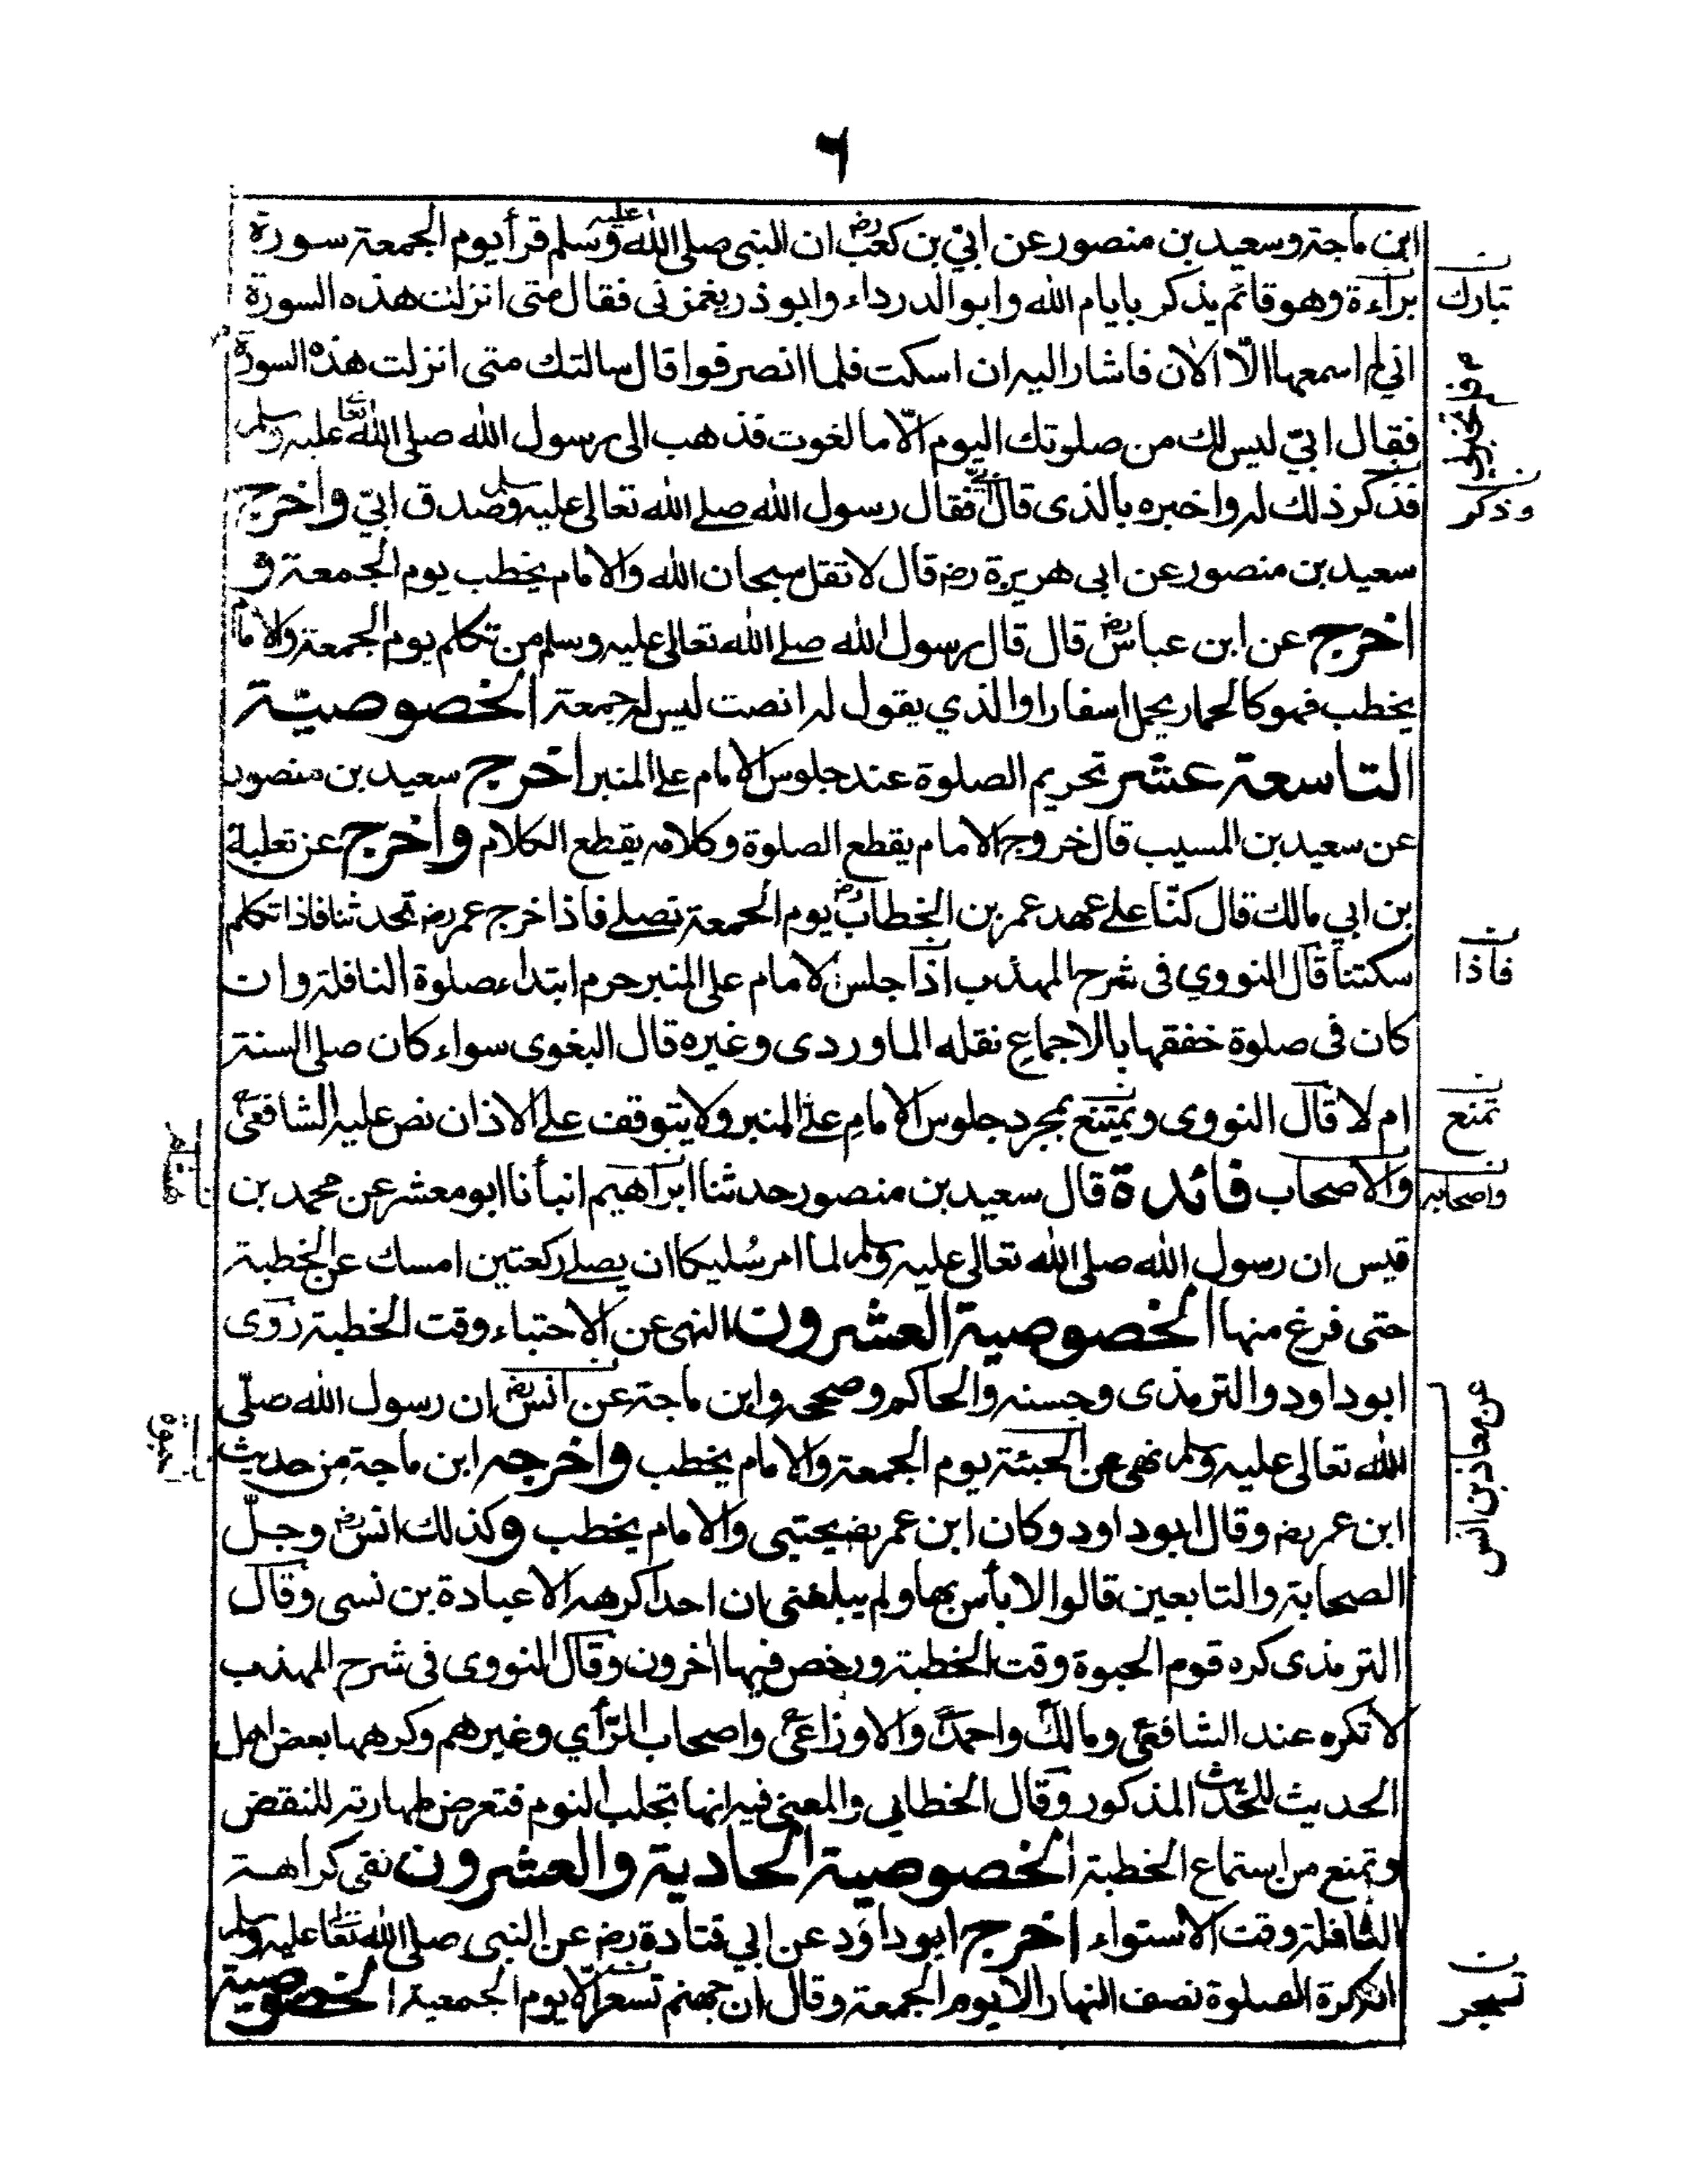 ٦
ابن ماجة وسعيد بن منصور عن ابيّ بن كعب رض ان النبى صلى الله عليه وسلم قرأ يوم الجمعة سورة
براءة وهو قائم يذكر بايام الله وابو الدرداء وابو ذر يغمزنى فقال متى انزلت هذه السورة
انى لم اسمعها الّا الان فاشار اليه ان اسكت فلما انصرفوا قال سالتك متى انزلت هذه السورة
فقال ابيّ ليس لك من صلوتك اليوم الّا ما لغوت فذهب الى رسول الله صلى الله تعا عليه وسلم
فذكر ذلك له واخبره بالذى قال ابيّ فقال رسول الله صلے الله تعالى عليه وسلم صدق ابيّ واخرج
سعيد بن منصور عن ابى هريرة رض قال لا تقل سبحان الله والامام يخطب يوم الجمعة و
اخرج عن ابن عباس رض قال قال رسول الله صلے الله تعالى عليه وسلم من تكلم يوم الجمعة والامام
يخطب فهو كالحمار يحمل اسفارا والذي يقول له انصت ليس له جمعة الخصوصيّة
التاسعة عشر تحريم الصلوة عند جلوس الامام علے المنبر اخرج سعيد بن منصور
عن سعيد بن المسيب قال خروج الامام يقطع الصلوة وكلامه يقطع الكلام واخرج عن ثعلبة
بن ابي مالك قال كنّا علے عهد عمر بن الخطاب رض يوم الجمعة نصلے فاذا خرج عمر رض تحدثنا فاذا تكلم
سكتنا قال النووي فى شرح المهذب اذا جلس الامام على المنبر حرم ابتداء صلوة النافلة وان
كان فى صلوة خففها بالاجماع نقله الماوردى وغيره قال البغوى سواء كان صلى السنة
ام لا قال النووى ويمتنع بمجرد جلوس الامام علے المنبر ولا يتوقف علے الاذان نص عليه الشافعى
والاصحاب فائدة قال سعيد بن منصور حدثنا ابراهيم انبأنا ابو معشر عن محمد بن
قيس ان رسول الله صلى الله تعالى عليه وسلم لما امر سُليكا ان يصلے ركعتين امسك عن الخطبة
حتى فرغ منها الخصوصية العشرون النهى عن الاحتباء وقت الخطبة روى
ابو داود والترمذى وحسنه والحاكم وصححه وابن ماجة عن انس رض ان رسول الله صلّى
الله تعالى عليه وسلم نهى عن الحبئة يوم الجمعة والامام يخطب واخرجه ابن ماجة من حديث
ابن عمر رض وقال ابو داود وكان ابن عمر رض يحتبى والامام يخطب وكذلك انس رض وجلّ
الصحابة والتابعين قالوا لا بأس بها ولم يبلغنى ان احدا كرهه الا عبادة بن نسى وقال
الترمذى كره قوم الحبوة وقت الخطبة ورخص فيها اخرون وقال النووى فى شرح المهذب
لا تكره عند الشافعى ومالك واحمد والاوزاعى واصحاب الرّأي وغيرهم وكرهها بعض اهل
الحديث للحديث المذكور وقال الخطابى والمعنى فيه انها تجلب النوم فتعرض طهارته للنقض
وتمنع من استماع الخطبة الخصوصية الحادية والعشرون نفى كراهة
النافلة وقت الاستواء اخرج ابو داود عن ابي قتادة رض عن النبى صلى الله تعا عليه وسلم
انه كره الصلوة نصف النهار الا يوم الجمعة وقال ان جهنم تسعر الّا يوم الجمعة الخصوصية
تبارك
فلم تخبرنى
وذكر
فاذا
تمنع
واصحابه
عن معاذ بن انس
الحبوة
تسجر